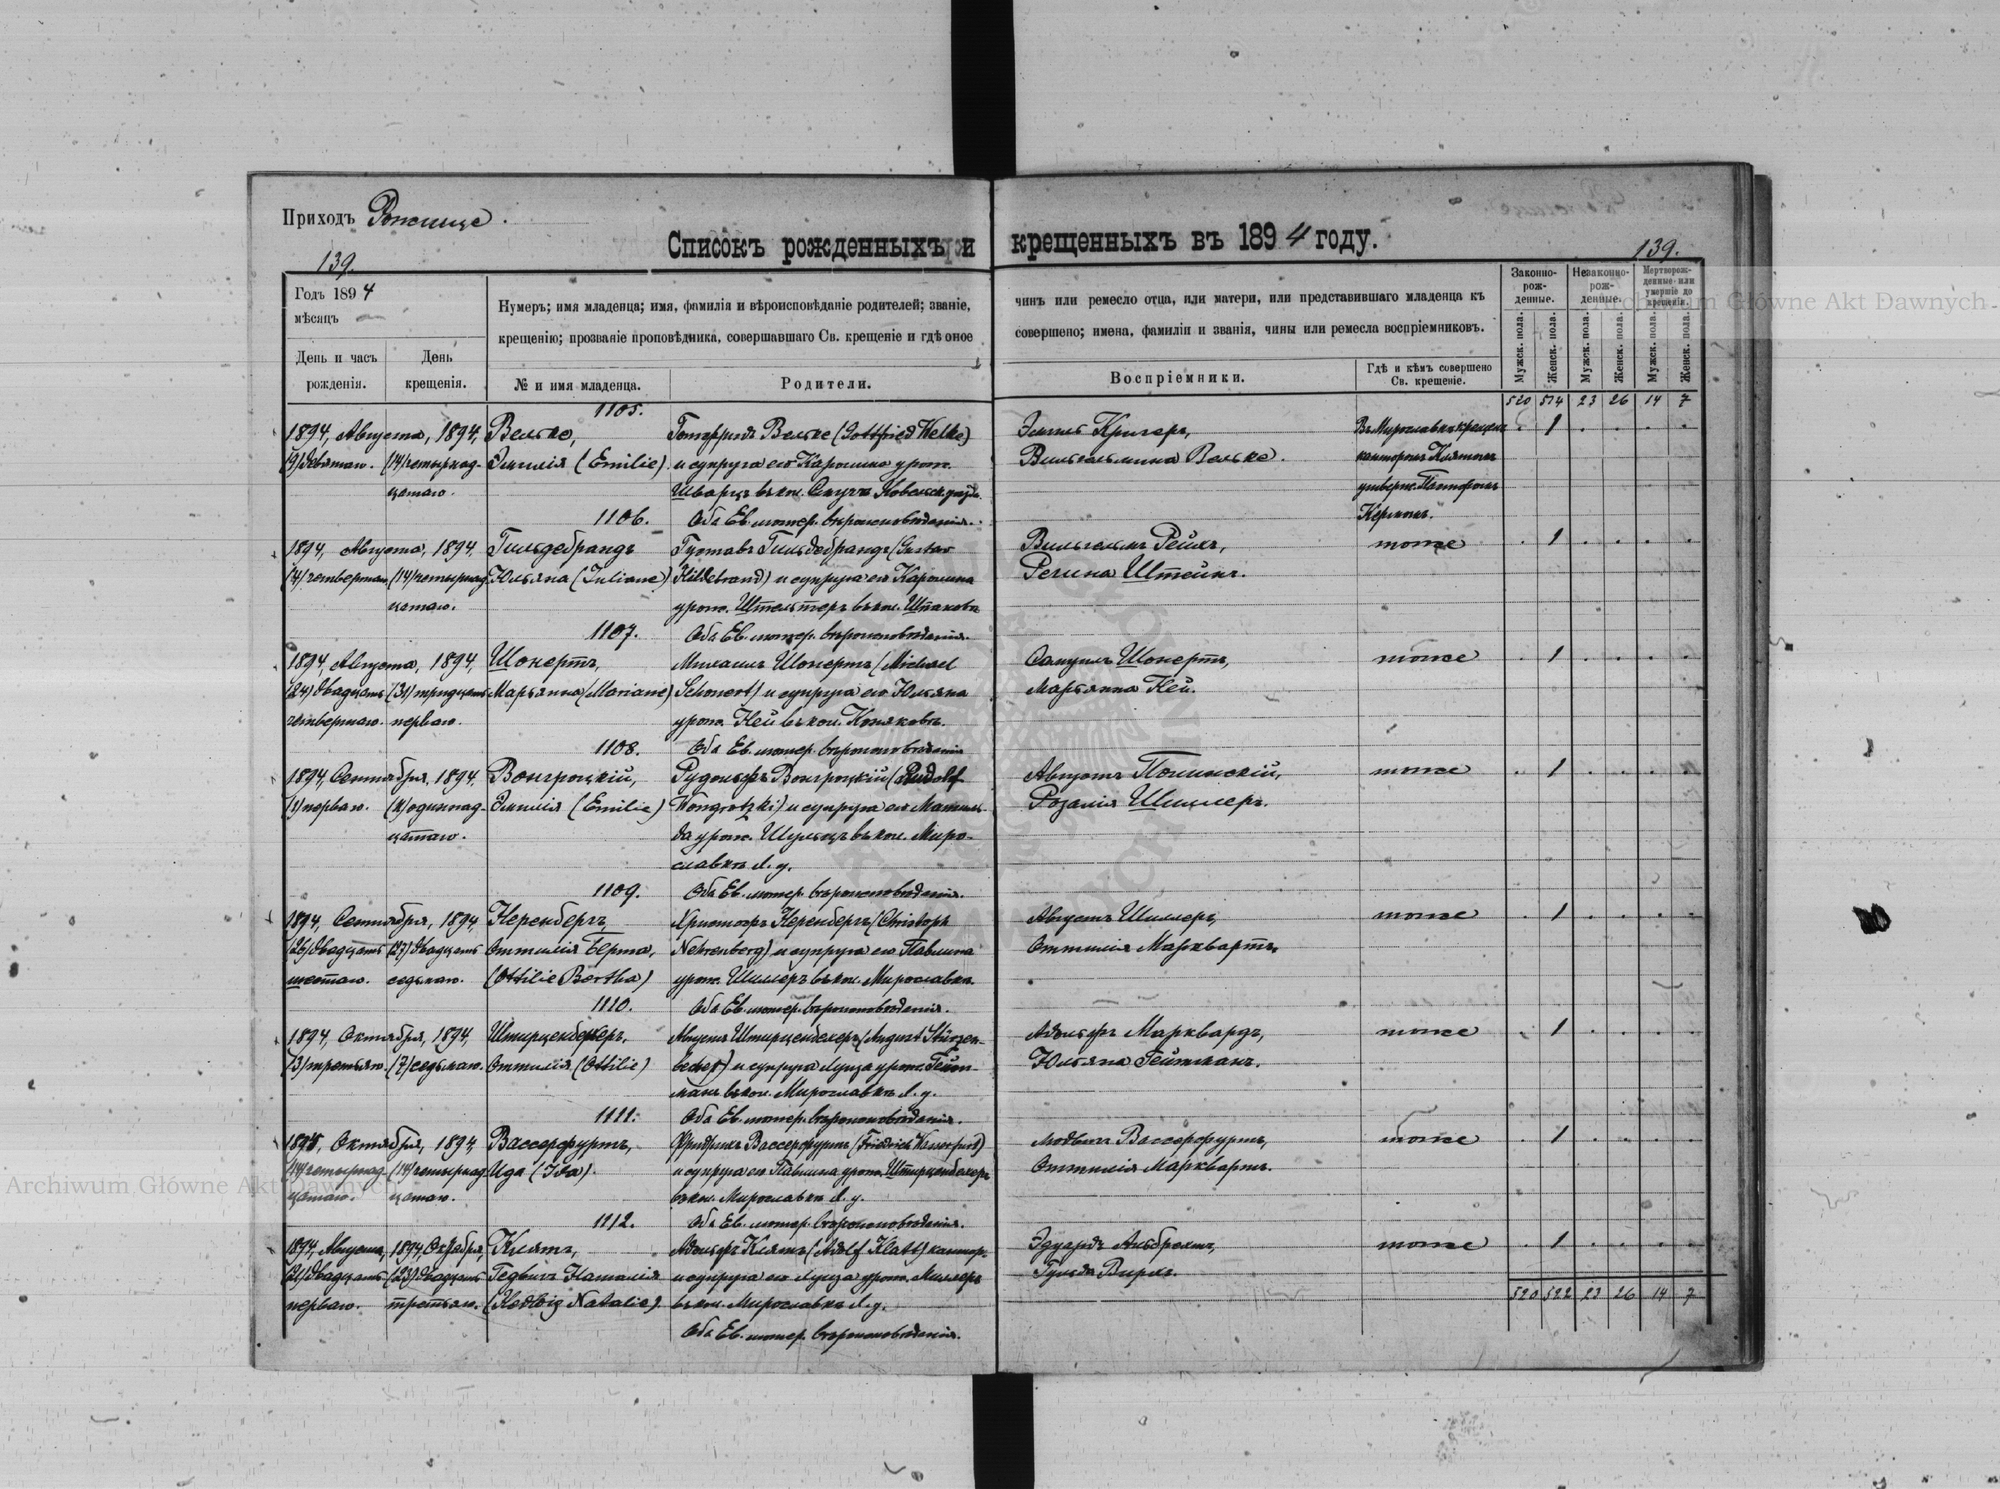 Приходъ Рожище.
Списокъ рожденныхъ и крещенныхъ въ 1894 году.
139.
139.
Годъ 1894
мѣсяцъ
День и часъ рожденія.
День крещенія.
Нумеръ; имя младенца; имя, фамилія и вѣроисповѣданіе родителей; званіе,
крещенію; прозваніе проповѣдника, совершавшаго Св. крещеніе и гдѣ оное
№ и имя младенца.
Родители.
чинъ или ремесло отца, или матери, или представившаго младенца къ
совершено; имена, фамиліи и званія, чины или ремесла воспріемниковъ.
Воспріемники.
Гдѣ и кѣмъ совершено
Св. крещеніе.
Законно-рож-денные.
Незаконно-рож-денные.
Мертворож-денные или умершіе до крещенія.
Мужск. пола.
Женск. пола.
Мужск. пола.
Женск. пола.
Мужск. пола.
Женск. пола.
520 514 23 26 14 7
1105.
1894, Августа, 1894, Вельке, Готфридъ Вельке (Gottfried Welke) Эмиль Кригеръ, Въ Мирославкѣ крещенъ . 1 . . . .
(9) девятаго. (14) четырнад- Эмилія (Emilie) и супруга его Каролина урож. Вильгельмина Вельке. канторомъ Клятомъ
цатаго. Шварцъ въ кол. Ковельск. уѣзда. утверж. Пасторомъ
1106. Оба Ев. лютер. вѣроисповѣданія. Керномъ.
1894, Августа, 1894, Гильдебрандъ Густавъ Гильдебрандъ (Gustav Вильгельмъ Рейхъ, тоже . 1 . . . .
(4) четвертаго (14) четырнад- Юльяна (Juliane) Hildebrand) и супруга его Каролина Регина Штейнъ.
цатаго. урож. Штельтеръ въ кол. Шпаковъ
1107. Оба Ев. лютер. вѣроисповѣданія.
1894, Августа, 1894, Шонертъ, Михаилъ Шонертъ (Michael Самуилъ Шонертъ, тоже . 1 . . . .
(24) двадцать (31) тридцать Марьянна (Mariane) Schonert) и супруга его Юльяна Марьянна Ней.
четвертаго. перваго. урож. Ней въ кол.
1108. Оба Ев. лютер. вѣроисповѣданія
1894, Сентября, 1894, Вонгроцкій, Рудольфъ Вонгроцкій (Rudolf Августъ тоже . 1 . . . .
(1) перваго. (11) одиннад- Эмилія (Emilie) Wongrotzki) и супруга его Матиль- Розалія
цатаго. да урож. Шульцъ въ кол. Миро-
славкѣ Л. у.
1109. Оба Ев. лютер. вѣроисповѣданія.
1894, Сентября, 1894, Неренбергъ, Христофъ Неренбергъ (Christoph Августъ Шиллеръ, тоже . 1 . . . .
(26) двадцать (27) двадцать Оттилія Берта, Nehrenberg) и супруга его Павлина Оттилія Марквартъ,
шестаго. седьмаго. (Ottilie Bertha) урож. Шиллеръ въ кол. Мирославка.
1110. Оба Ев. лютер. вѣроисповѣданія.
1894, Октября, 1894, Штирценбехеръ, Августъ Штирценбехеръ (August Stürzen- Адольфъ Марквардъ, тоже . 1 . . . .
(3) третьяго. (7) седьмаго. Оттилія (Ottilie) becher) и супруга Луиза урож. Гейт- Юльяна Гейтманъ.
манъ въ кол. Мирославкѣ Л. у.
1111. Оба Ев. лютер. вѣроисповѣданія.
1894, Октября, 1894, Вассерфуртъ, Фридрихъ Вассерфуртъ (Friedrich Wasserfurt) Людвигъ Вассерфуртъ, тоже . 1 . . . .
(14) четырнад- (14) четырнад- Ида (Ida) и супруга его Павлина урож. Штирценбехеръ Оттилія Марквартъ.
цатаго. цатаго. въ кол. Мирославкѣ Л. у.
1112. Оба Ев. лютер. вѣроисповѣданія.
1894, Августа, 1894, Октября, Клятъ, Адольфъ Клятъ (Adolf Klatt) канторъ Эдуардъ Альбрехтъ, тоже . 1 . . . .
(21) двадцать (23) двадцать Гедвигъ Наталія и супруга его Луиза урож. Миллеръ Гульда
перваго. третьяго. (Hedwig Natalie) въ кол. Мирославкѣ Л. у. 520 522 23 26 14 7
Оба Ев. лютер. вѣроисповѣданія.
Archiwum Główne Akt Dawnych
Archiwum Główne Akt Dawnych